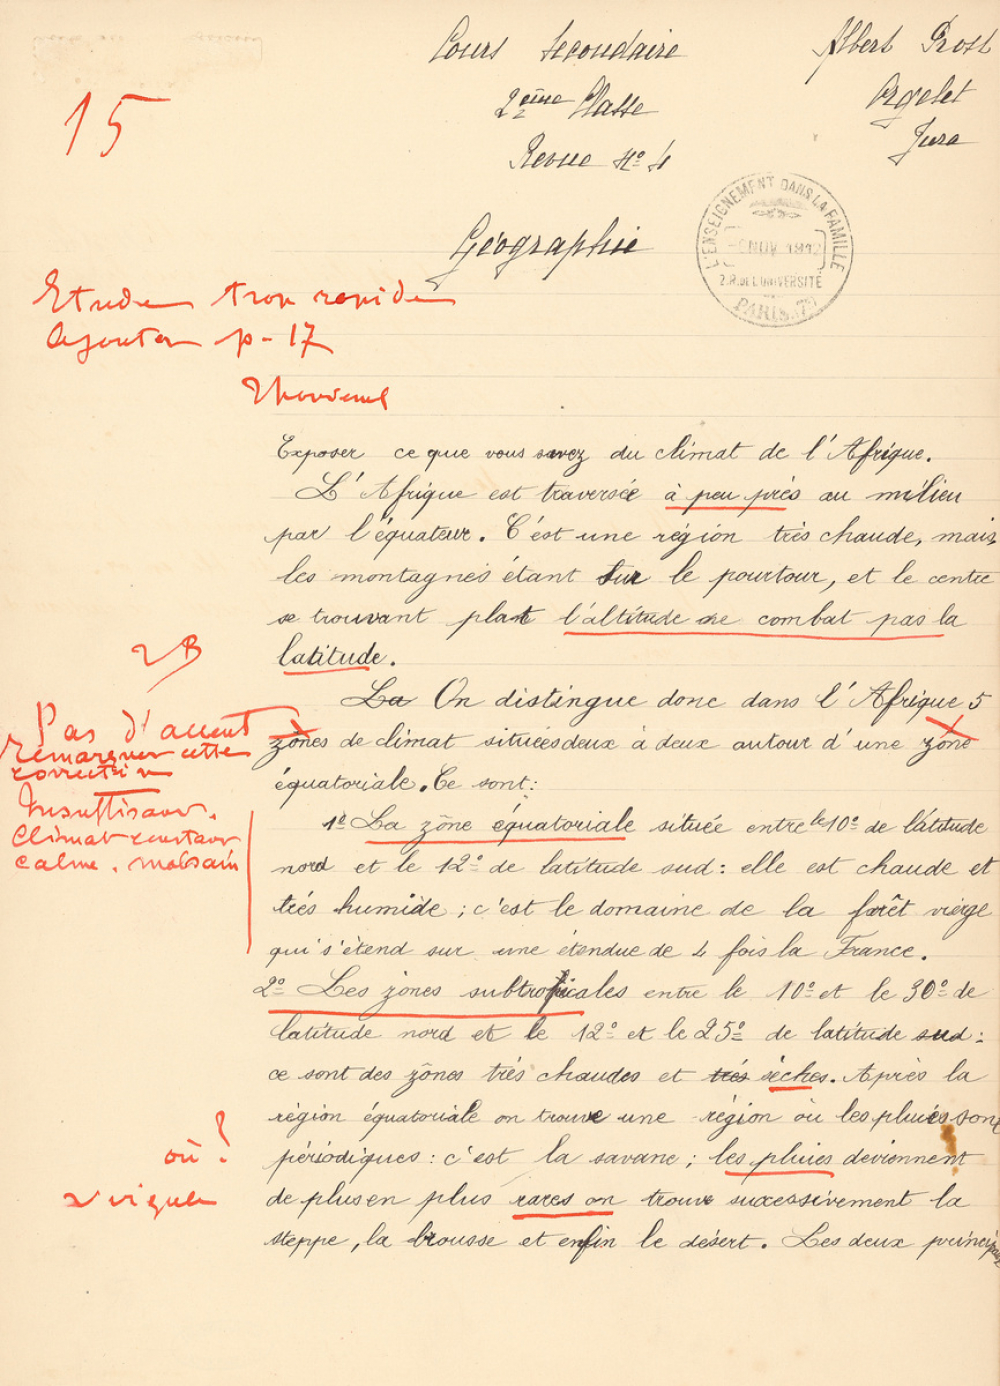 Cours secondaire
Albert Prost
2ème Classe
Orgelet
Revue Nº 4
Jura
15
Géographie
L'ENSEIGNEMENT DANS LA FAMILLE
NOV 1912
2.R.DE L'UNIVERSITÉ
PARIS.7e
Etude trop rapide
Ajouter p-17
Exposer ce que vous savez du climat de l'Afrique.
L'Afrique est traversée à peu près au milieu
par l'équateur. C'est une région très chaude, mais
les montagnes étant sur le pourtour, et le centre
se trouvant plat l'altitude ne combat pas la
latitude.
La On distingue donc dans l'Afrique 5
zônes de climat situées deux à deux autour d'une zône
équatoriale. Ce sont:
Pas d'accent
remarquer cette
correction
1º La zône équatoriale située entre le 10º de latitude
nord et le 12º de latitude sud: elle est chaude et
très humide; c'est le domaine de la forêt vierge
qui s'étend sur une étendue de 4 fois la France.
Insuffisant.
Climat constant
calme. malsain
2º Les zônes subtropicales entre le 10º et le 30º de
latitude nord et le 12º et le 25º de latitude sud:
ce sont des zônes très chaudes et très sèches. Après la
région équatoriale on trouve une région où les pluies sont
périodiques: c'est la savane; les pluies deviennent
de plus en plus rares on trouve successivement la
steppe, la brousse et enfin le désert. Les deux principaux
où?
virgule